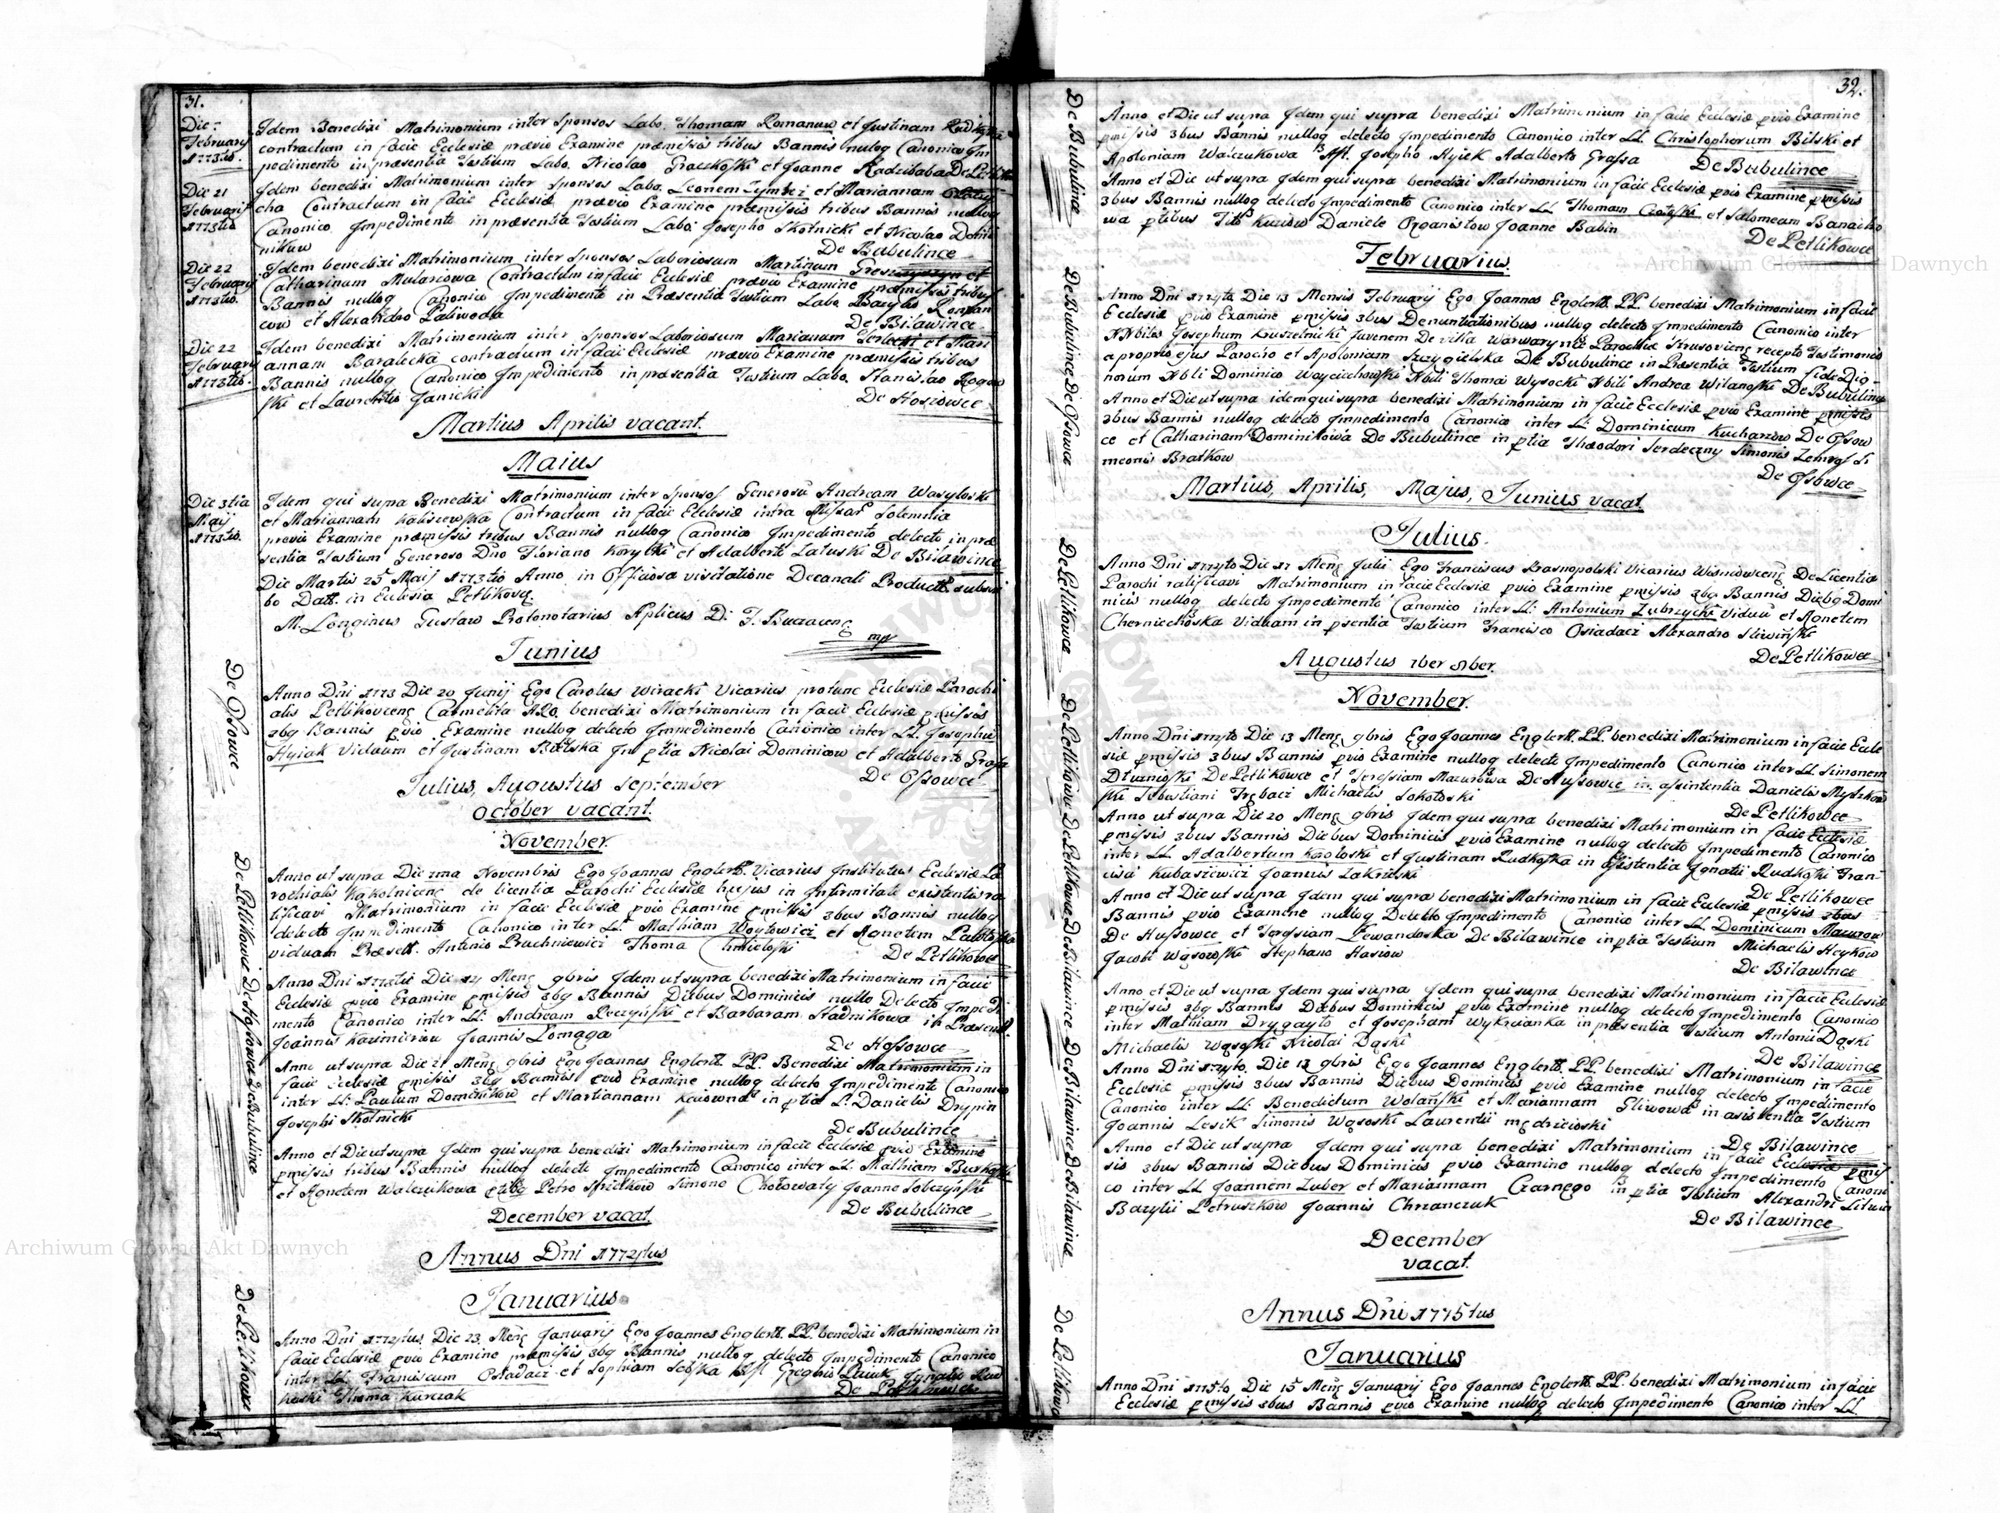 31.
Die
February
1773tio.
Idem Benedixi Matrimonium inter Sponsos Labo. Thomam Romanuw et Justinam
contractum in facie Ecclesiæ prævio Examine præmissis tribus Bannis nulloq Canonico Im
pedimento in præsentia Testium Labo. Nicolao Graczkoski et Joanne Radzibaba
Die 21
Februarij
1773tio
Idem benedixi Matrimonium inter Sponsos Labo. Leonem et Mariannam
cha Contractum in facie Ecclesiæ prævio Examine præmissis tribus Bannis nulloq
Canonico Impedimento in præsentia Testium Labo. Josepho Skotnicki et Nicolao Domi
nikuw De Bubulince
Die 22
February
1773tio.
Idem benedixi Matrimonium inter Sponsos Laboriosum Martinum et
Catharinam Mulariowa Contractum in facie Ecclesiæ prævio Examine præmissis tribus
Bannis nulloq Canonico Impedimento in Præsentia Testium Labo Bazylio Roman
cuw et Alexandro Paliwoda De Bilawince
Die 22
February
1773tio.
Idem benedixi Matrimonium inter Sponsos Laboriosum Marianum et Mari
annam Baralecka contractum in facie Ecclesiæ prævio Examine præmissis tribus
Bannis nulloq Canonico Impedimento in præsentia Testium Labo. Stanislao Rogow
ski et Laurentio Janicki De Hoszowce
Martius Aprilis vacant.
Maius
Die 3tia
Maij
1773tio.
Idem qui supra Benedixi Matrimonium inter Sponsos Generosū Andream Wasyloski
et Mariannam Kaliszewska Contractum in facie Ecclesiæ intra Missar Solemnia
prævio Examine præmissis tribus Bannis nulloq Canonico Impedimento delecto in præ
sentia Testium Generoso Dno Floriano Korytki et Adalberto Latuski De Bilawince
Die Martis 25 Maij 1773tio Anno in Officiosa visitatione Decanali Product subscri
bo Datt. in Eclesia Petlikovcz.
M. Longinus Gustaw Protonotarius Aplicus D. F. Buczacenq
mp
Junius
De Ossowce
Anno Dni 1773 Die 20 Junij Ego Carolus Wiracki Vicarius protunc Ecclesiæ Parochi
alis Petlikovcenq Carmelita benedixi Matrimonium in facie Ecclesiæ pmissis
3bq Bannis pvio Examine nulloq delecto Impedimento Canonico inter LL. Josephū
Hyiak Viduum et Justinam Bilska In ptia Nicolai Dominicow et Adalberto Grassa
De Ossowce
Julius, Augustus September
October vacant.
November.
De Petlikowce De Hossowce De Bubulince
Anno ut supra Die 7ma Novembris Ego Joannes Englertt Vicarius Institutus Ecclesiæ Pa
rochialis Kokolnicenq de licentia Parochi Ecclesiæ hujus in Infirmitate existentis ra
tificavi Matrimonium in facie Ecclesiæ pvio Examine pmissis 3bus Bannis nulloq
delecto Impedimento Canonico inter LL. Mathiam Woytowicz et Agnetem
viduam Præsett. Antonio Pruchniewicz Thoma Chmieloski De Petlikowce
Anno Dni 1773tio Die 14 Menq 9bris Idem ut supra benedixi Matrimonium in facie
Ecclesiæ pvio Examine pmissis 3bq Bannis Diebus Dominicis nullo Delecto Impedi
mento Canonico inter LL. Andream et Barbaram Stadnikowa in Præsentt.
Joannis Kazimirow Joannis Lomaga De Hossowce
Anno ut supra Die 21 Menq 9bris Ego Joannes Englertt. PL. Benedixi Matrimonium in
facie Ecclesiæ pmissis 3bq Bannis pvio Examine nulloq delecto Impedimento Canonico
inter LL. Paulum Dominikow et Mariannam in ptia L. Danielis Drypin
Josephi Skotnicki De Bubulince
Anno et Die ut supra Idem qui supra benedixi Matrimonium in facie Ecclesiæ pvio Examine
pmissis tribus Bannis nulloq delecto Impedimento Canonico inter LL. Mathiam
et Agnetem Walczukowa Petro Simone Joanne Sobczynski
De Bubulince
December vacat.
Annus Dni 1774tus
Januarius
De Petlikowce
Anno Dni 1774tus Die 23 Menq Januarij Ego Joannes Englertt. PL. benedixi Matrimonium in
facie Ecclesiæ pvio Examine præmissis 3bq Bannis nulloq delecto Impedimento Canonico
inter LL. Franciscum Osiadacz et Sophiam Ignatio Rud
koski Thoma Kurczak
32.
De Bubulince
Anno et Die ut supra Idem qui supra benedixi Matrimonium in facie Ecclesiæ pvio Examine
pmissis 3bus Bannis nulloq delecto Impedimento Canonico inter LL. Christophorum Bilski et
Apoloniam Walczukowa Josepho Hyiek Adalberto Grassa De Bubulince
Anno et Die ut supra Idem qui supra benedixi Matrimonium in facie Ecclesiæ pvio Examine pmissis
3bus Bannis nulloq delecto Impedimento Canonico inter LL. Thomam et Salomeam Banacho
wa ptibus Daniele Organistow Joanne Babin
De Petlikowce
Februarius.
De Bubulince De Ossowce
Anno Dni 1774to Die 13 Mensis Februarij Ego Joannes Englertt. PL. benedixi Matrimonium in facie
Ecclesiæ pvio Examine pmissis 3bus Denuntiationibus nulloq delecto Impedimento Canonico inter
NNbiles Josephum Kruszelnicki Juvenem De villa Warwarynce Parochiæ recepto Testimonio
a proprio ejus Parocho et Apoloniam Strzygielska De Bubulince in Præsentia Testium fide Dig
norum Nbli Dominico Woyciechowski Nbili Thoma Wysocki Nbili Andrea Wilanoski De Bubulince
Anno et Die ut supra idem qui supra benedixi Matrimonium in facie Ecclesiæ pvio Examine pmissis
3bus Bannis nulloq delecto Impedimento Canonico inter LL. Dominicum Kucharzow De Ossow
ce et Catharinam Dominikowa De Bubulince in ptia Theodori Serdeczny Simonis Si
meonis Bratkow De Ossowce
Martius, Aprilis, Majus, Junius vacat.
Julius.
De Petlikowce
Anno Dni 1774to Die 17 Menq Julii Ego Franciscus Krasnopolski Vicarius Wisniowcenq De Licentia
Parochi ratificavi Matrimonium in facie Ecclesiæ pvio Examine pmissis 3bq Bannis Diebq Domi
nicis nulloq delecto Impedimento Canonico inter LL. Antonium Zubrzycki Viduū et Agnetem
Cherniechoska Viduam in psentia Testium Francisco Osiadacz Alexandro Sliwinski
De Petlikowce
Augustus 7ber 8ber.
November.
De Petlikowce De Petlikowce De Bilawince De Bilawince De Bilawince
Anno Dni 1774to Die 13 Menq 9bris Ego Joannes Englertt. PL. benedixi Matrimonium in facie Eccle
siæ pmissis 3bus Bannis pvio Examine nulloq delecto Impedimento Canonico inter LL. Simonem
Dluznioski De Petlikowce et Teressiam Mazurowa De Hussowce in assistentia Danielis Myszkow
ski Sebastiani Trębacz Michaelis Sokoloski
De Petlikowce
Anno ut supra Die 20 Menq 9bris Idem qui supra benedixi Matrimonium in facie Ecclesiæ
pmissis 3bus Bannis Diebus Dominicis pvio Examine nulloq delecto Impedimento Canonico
inter LL. Adalbertum Krotoski et Justinam Rudkoska in Assistentia Ignatii Rudkoski Fran
cisci Kubasiewicz Joannis Zakrzeski
De Petlikowce
Anno et Die ut supra Idem qui supra benedixi Matrimonium in facie Ecclesiæ pmissis 3bus
Bannis pvio Examine nulloq Delecto Impedimento Canonico inter LL. Dominicum Mazurow
De Hussowce et Teressiam Lewandoska De Bilawince in ptia Testium Michaelis Heykow
Jacobi Wąsowski Stephano Hasiow
De Bilawince
Anno et Die ut supra Idem qui supra Idem qui supra benedixi Matrimonium in facie Ecclesiæ
pmissis 3bq Bannis Diebus Dominicis pvio Examine nulloq delecto Impedimento Canonico
inter Mathiam Drygayto et Josepham Wykrcianka in præsentia Testium Antonii Dąski
Michaelis Wąsoski Nicolai Dąski
De Bilawince
Anno Dni 1774to. Die 13 9bris Ego Joannes Englertt. PL. benedixi Matrimonium in facie
Ecclesiæ pmissis 3bus Bannis Diebus Dominicis pvio Examine nulloq delecto Impedimento
Canonico inter LL. Benedictum Wolański et Mariannam Sliwowa in asistentia Testium
Joannis Lesik Simonis Wąsoski Laurentii mędrzicioski
De Bilawince
Anno et Die ut supra Idem qui supra benedixi Matrimonium in facie Ecclesiæ pmis
sis 3bus Bannis Diebus Dominicis pvio Examine nulloq delecto Impedimento Canoni
co inter LL Joannem Zuber et Mariannam Czarnego in ptia Testium Alexandri Litwin
Bazylii Petruszkow Joannis Chrzanczuk
De Bilawince
December
vacat.
Annus Dni 1775tus
Januarius
De Petlikowce
Anno Dni 1775to Die 15 Menq Januarij Ego Joannes Englertt. PL. benedixi Matrimonium in facie
Ecclesiæ pmissis 3bus Bannis pvio Examine nulloq delecto Impedimento Canonico inter LL
Archiwum Główne Akt Dawnych
Archiwum Główne Akt Dawnych